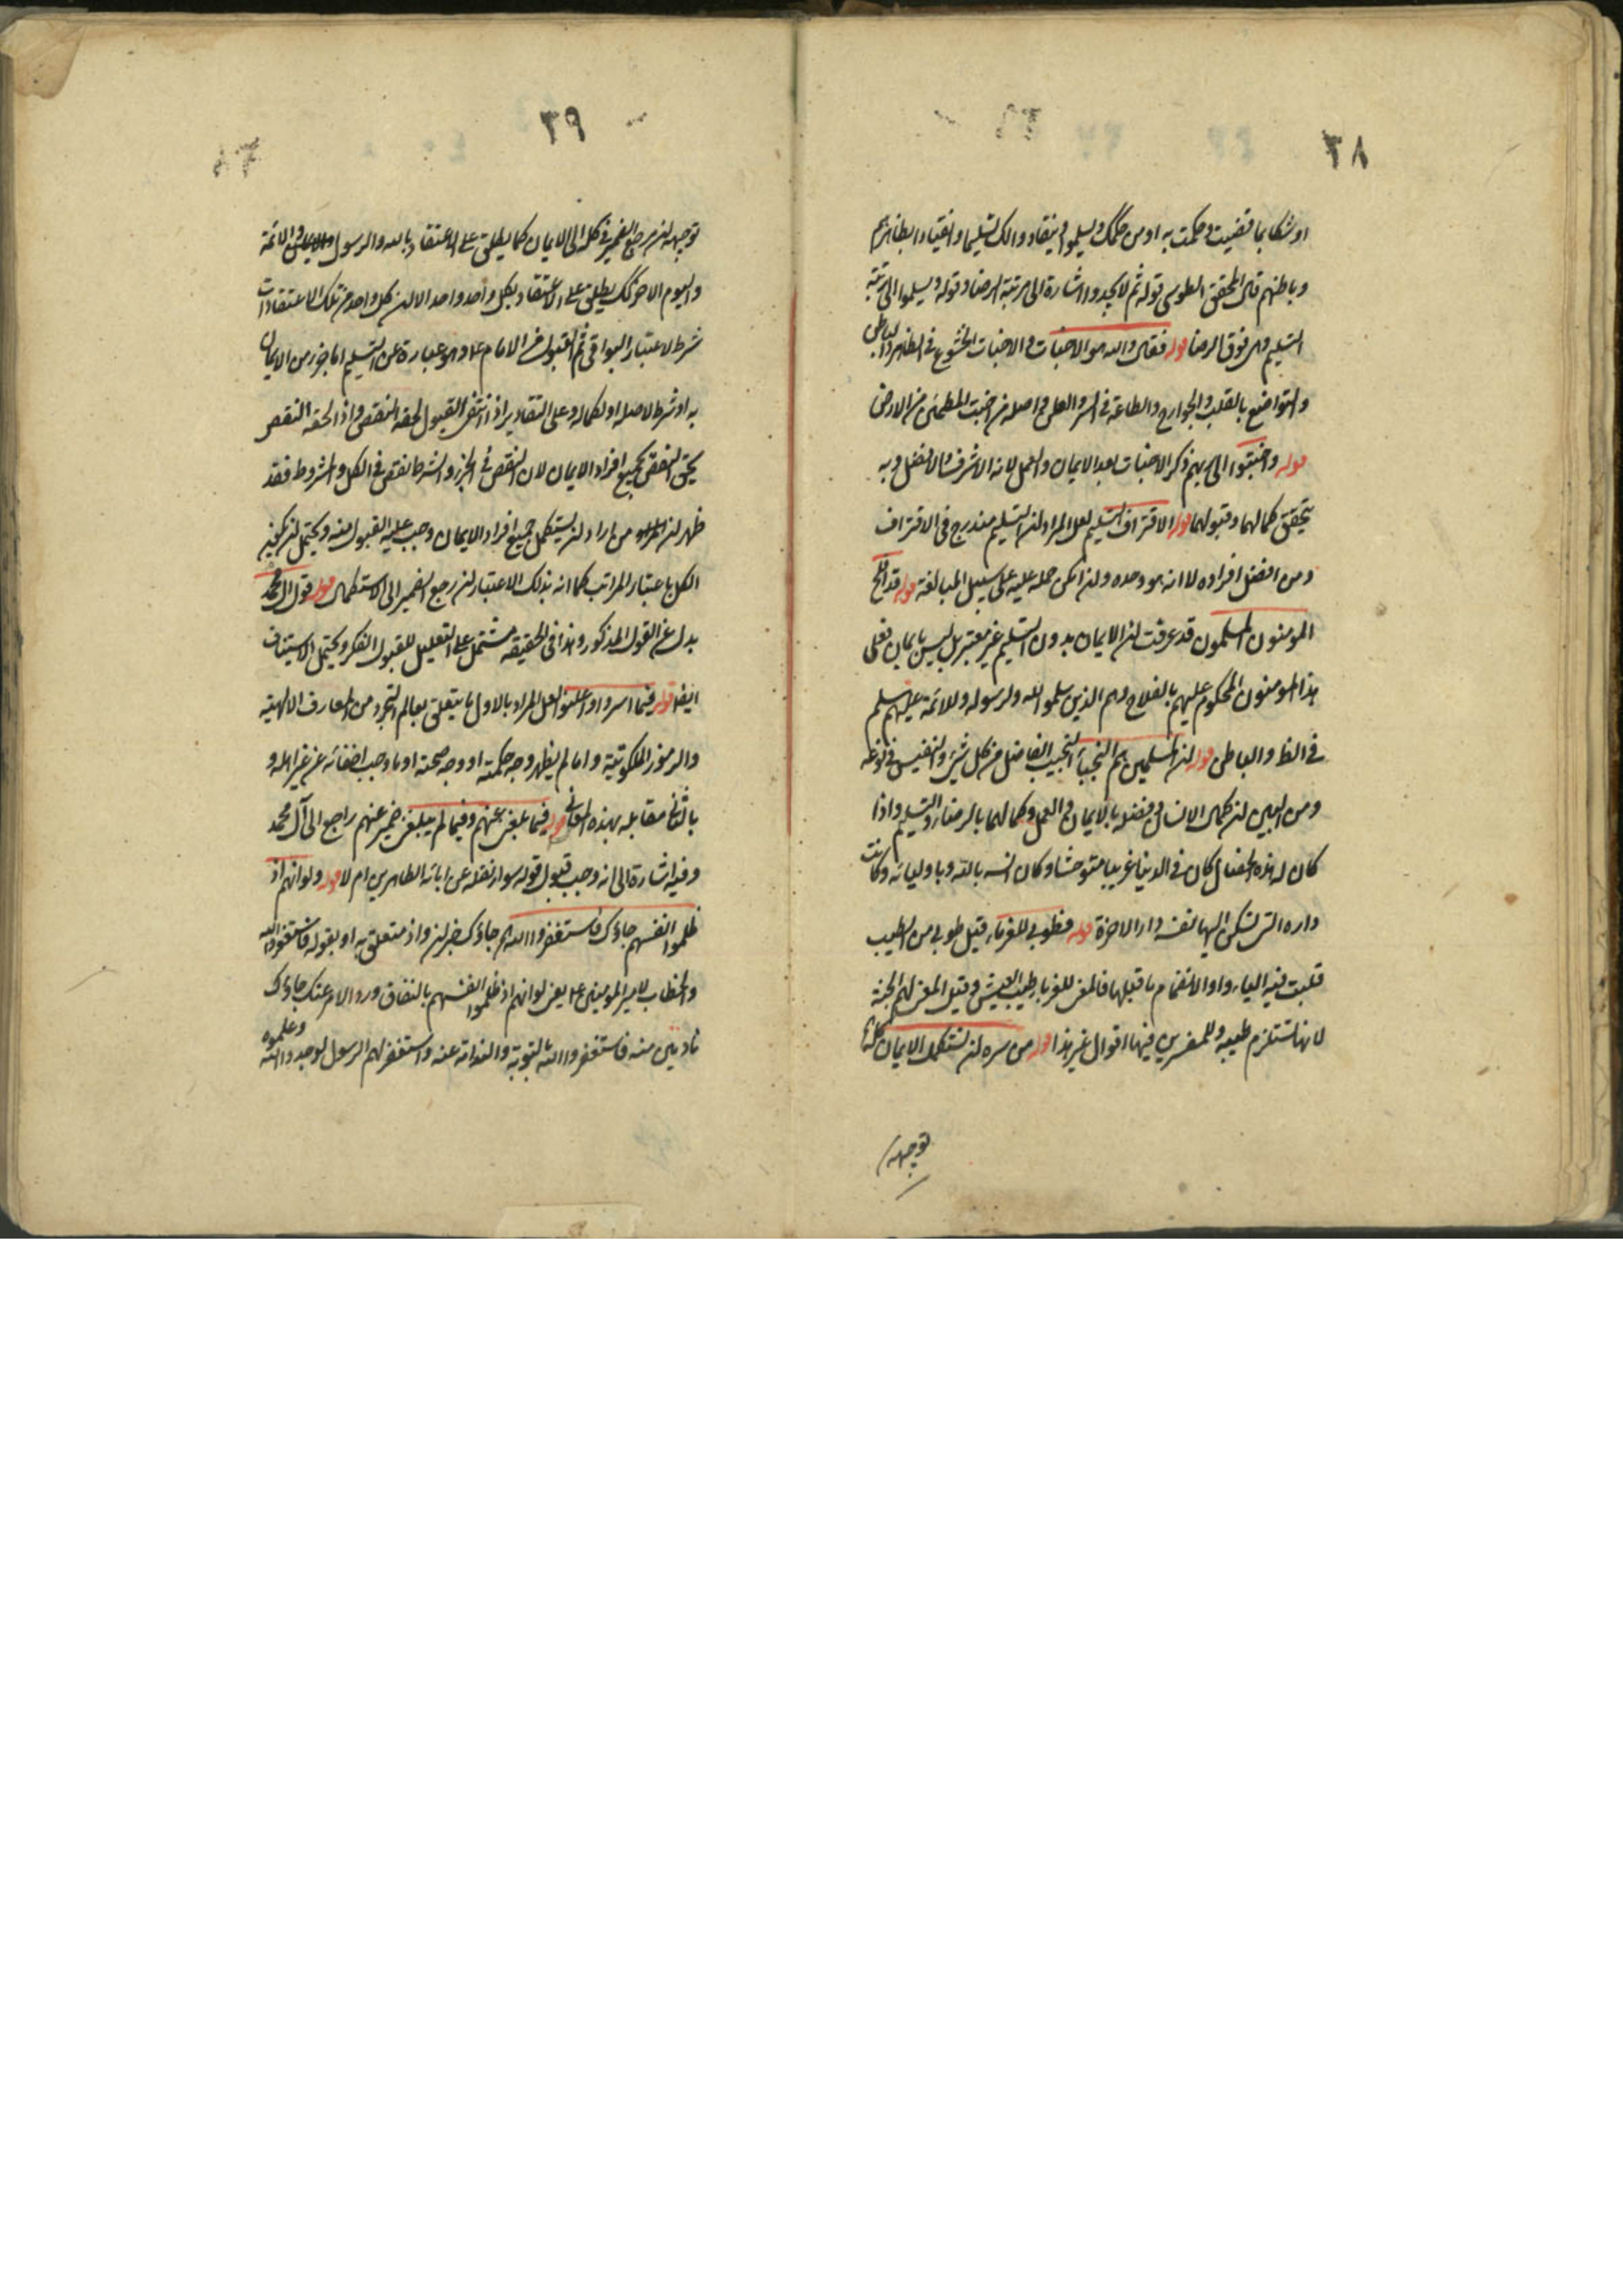 ٣٨
او شكا مما قضيت وحكمت به او من حكمك ويسلموا وينقادوا لك تسليما وانقيادا بظاهرهم
وباطنهم قال المحقق الطوسي قوله ثم لا يجدوا اشارة الى مرتبة الرضا وقوله ويسلموا الى مرتبة
التسليم وهى فوق الرضا قوله فقال والله هو الاخبات والاخبات الخشوع فى الظاهر والباطن
والتواضع بالقلب والجوارح والطاعة فى السر والعلن واصله من الخبت المطمئن من الارض
قوله واخبتوا الى ربهم ذكر الاخبات بعد الايمان والعمل لانه الاشرف والافضل وبه
يتحقق كمالهما وقبولهما قوله الاقتراف التسليم لعل المراد ان التسليم مندرج فى الاقتراف
ومن افضل افراده لا انه هو وحده وان امكن حمله عليه على سبيل المبالغة قوله قد افلح
المؤمنون المسلمون قد عرفت ان الايمان بدون التسليم غير معتبر بل ليس بايمان فعلى
هذا المومنون المحكوم عليهم بالفلاح وهم الذين سلموا لله ولرسوله وللائمة عليهم سلم
فى الظ والباطن قوله ان المسلمين هم النجباء النجيب الفاضل من كل شىء والنفيس فى نوعه
ومن البين ان كمال الانسان وفضله بالايمان والعمل وكمالهما بالرضا والتسليم واذا
كان له هذه الخصال كان فى الدنيا غريبا متوحشا وكان انسه بالله وباوليائه وكانت
داره التى تسكن اليها نفسه دار الاخرة قوله فطوبى للغرباء قيل طوبى من الطيب
قلبت فيه الياء واوا لانضمام ما قبلها فالمعنى للغرباء طيب العيش وقيل المعنى لهم الجنة
لانها تستلزم طيبه وللمفسرين فيها اقوال غير هذا قوله من سره ان يستكمل الايمان كله
توجيهه
٣٩
توجيهه ان مرجع الضمير فى كله الى الايمان كما يطلق على الاعتقاد بالله والرسول والائمة
واليوم الاخر كك يطلق على الاعتقاد بكل واحد واحد الا ان كل واحد من تلك الاعتقادات
شرط لاعتبار البواقى ثم القبول من الامام ع وهو عبارة عن التسليم اما جزء من الايمان
به او شرط لاصله او لكماله وعلى التقادير اذا انتفى القبول لحقه النقص واذا لحقه النقص
لحق النقص بجميع افراد الايمان لان النقص فى الجزء والشرط نقص فى الكل والمشروط فقد
ظهر ان من اراد ان يستكمل جميع افراد الايمان وجب عليه القبول منه ويحتمل ان يكون
الكل باعتبار المراتب كما انه بذلك الاعتبار ان رجع الضمير الى الاستكمال قوله قول آل محمد
بدل عن القول المذكور وهذا فى الحقيقة مشتمل على التعليل للقبول الفكر ويحتمل الاستيناف
ايضا قوله فيما اسروا وما اعلنوا لعل المراد بالاول ما يتعلق بعالم التجرد من المعارف الالهية
والرموز الملكوتية واما لم يظهر وجه حكمته او وجه صحته او ما وجب اخفائه عن غير اهله و
بالثانى مقابله بهذه المعانى قوله فيما بلغنى عنهم وفيما لم يبلغنى ضمير عنهم راجع الى آل محمد
وفيه اشارة الى انه وجب قبول قوله سواء نقله عن ابائه الطاهرين ام لا قوله ولو انهم اذ
ظلموا انفسهم جاؤك فاستغفروا الله جاؤك خبر ان واذ متعلق به او بقوله فاستغفروا الله
والخطاب لامير المومنين ع يعنى لو انهم اذ ظلموا انفسهم بالنفاق ورد الامر عنك جاؤك
نادمين منه فاستغفروا الله بالتوبة والندامة عنه واستغفر لهم الرسول لوجدوا الله وعلموه